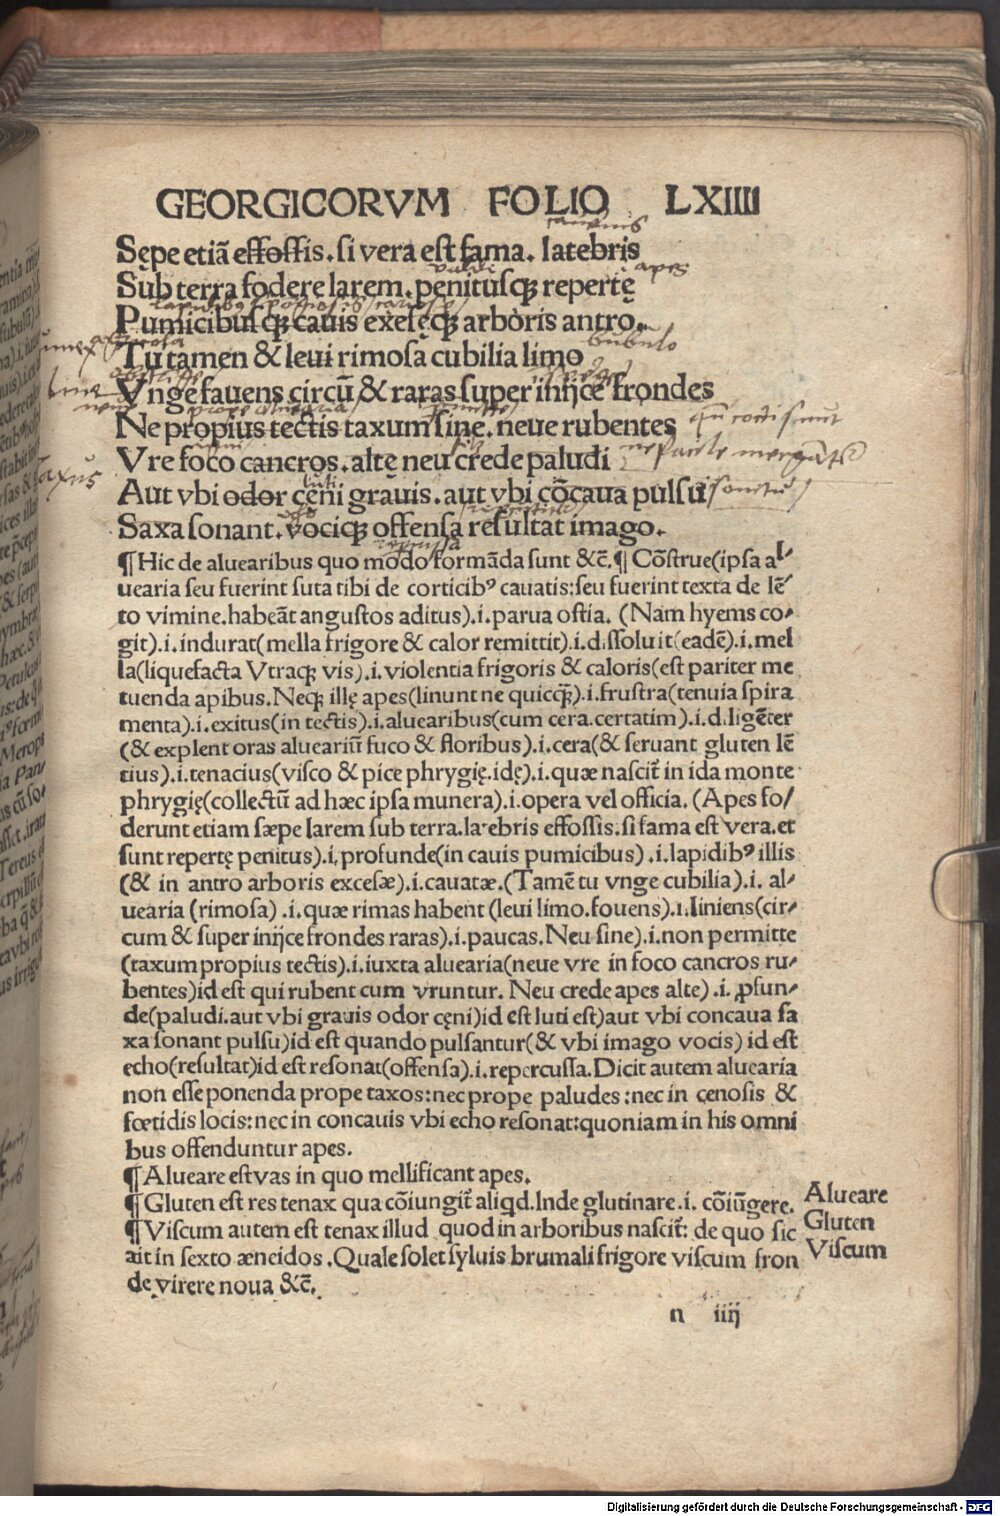 GEORGICORVM FOLIO LXIIII
Sępe etiã effossis. si vera est fama. latebris
Sub terra fodere larem. penitusq; repertę
Pumicibusq; cauis exesęq; arboris antro.
Tu tamen & leui rimosa cubilia limo
bubulo
Vnge fauens circũ & raras super inijce frondes
Ne propius tectis taxum sine. neue rubentes
Vre foco cancros. altę neu crede paludi
Aut vbi odor cęni grauis. aut vbi cõcaua pulsu
Saxa sonant. vociq; offensa resultat imago.
¶ Hic de aluearibus quo modo formãda sunt &c̃. ¶ Cõstrue (ipsa al⸗
uearia seu fuerint suta tibi de corticibꝰ cauatis: seu fuerint texta de lẽ⸗
to vimine. habeãt angustos aditus) .i. parua ostia. (Nam hyems co⸗
git) .i. indurat (mella frigore & calor remittit) .i. dissoluit (eadẽ) .i. mel
la (liquefacta Vtraq; vis) .i. violentia frigoris & caloris (est pariter me
tuenda apibus. Neq; illę apes (linunt ne quicq̃) .i. frustra (tenuia spira
menta) .i. exitus (in tectis) .i. aluearibus (cum cera. certatim) .i. diligẽter
(& explent oras alueariũ fuco & floribus) .i. cera (& seruant gluten lẽ
tius) .i. tenacius (visco & pice phrygię. idę) .i. quæ nascit̃ in ida monte
phrygię (collectũ ad hæc ipsa munera) .i. opera vel officia. (Apes fo/
derunt etiam sæpe larem sub terra. latebris effossis. si fama est vera. et
sunt repertę penitus) .i. profunde (in cauis pumicibus) .i. lapidibꝰ illis
(& in antro arboris excesæ) .i. cauatæ. (Tamẽ tu vnge cubilia) .i. al⸗
uearia (rimosa) .i. quæ rimas habent (leui limo. fouens) .i. liniens (cir⸗
cum & super inijce frondes raras) .i. paucas. Neu sine) .i. non permitte
(taxum propius tectis) .i. iuxta aluearia (neue vre in foco cancros ru⸗
bentes) id est qui rubent cum vruntur. Neu crede apes alte) .i. ꝓfun⸗
de (paludi. aut vbi grauis odor cęni) id est luti est) aut vbi concaua sa
xa sonant pulsu) id est quando pulsantur (& vbi imago vocis) id est
echo (resultat) id est resonat (offensa) .i. repercussa. Dicit autem aluearia
non esse ponenda prope taxos: nec prope paludes: nec in cenosis &
fœtidis locis: nec in concauis vbi echo resonat: quoniam in his omni
bus offenduntur apes.
¶ Alueare est vas in quo mellificant apes.
¶ Gluten est res tenax qua cõiungit̃ aliqd. Inde glutinare .i. cõiũgere.
¶ Viscum autem est tenax illud quod in arboribus nascit̃: de quo sic
ait in sexto æneidos. Quale solet syluis brumali frigore viscum fron
de virere noua &c̃.
Alueare
Gluten
Viscum
n iiij
Digitalisierung gefördert durch die Deutsche Forschungsgemeinschaft - DFG